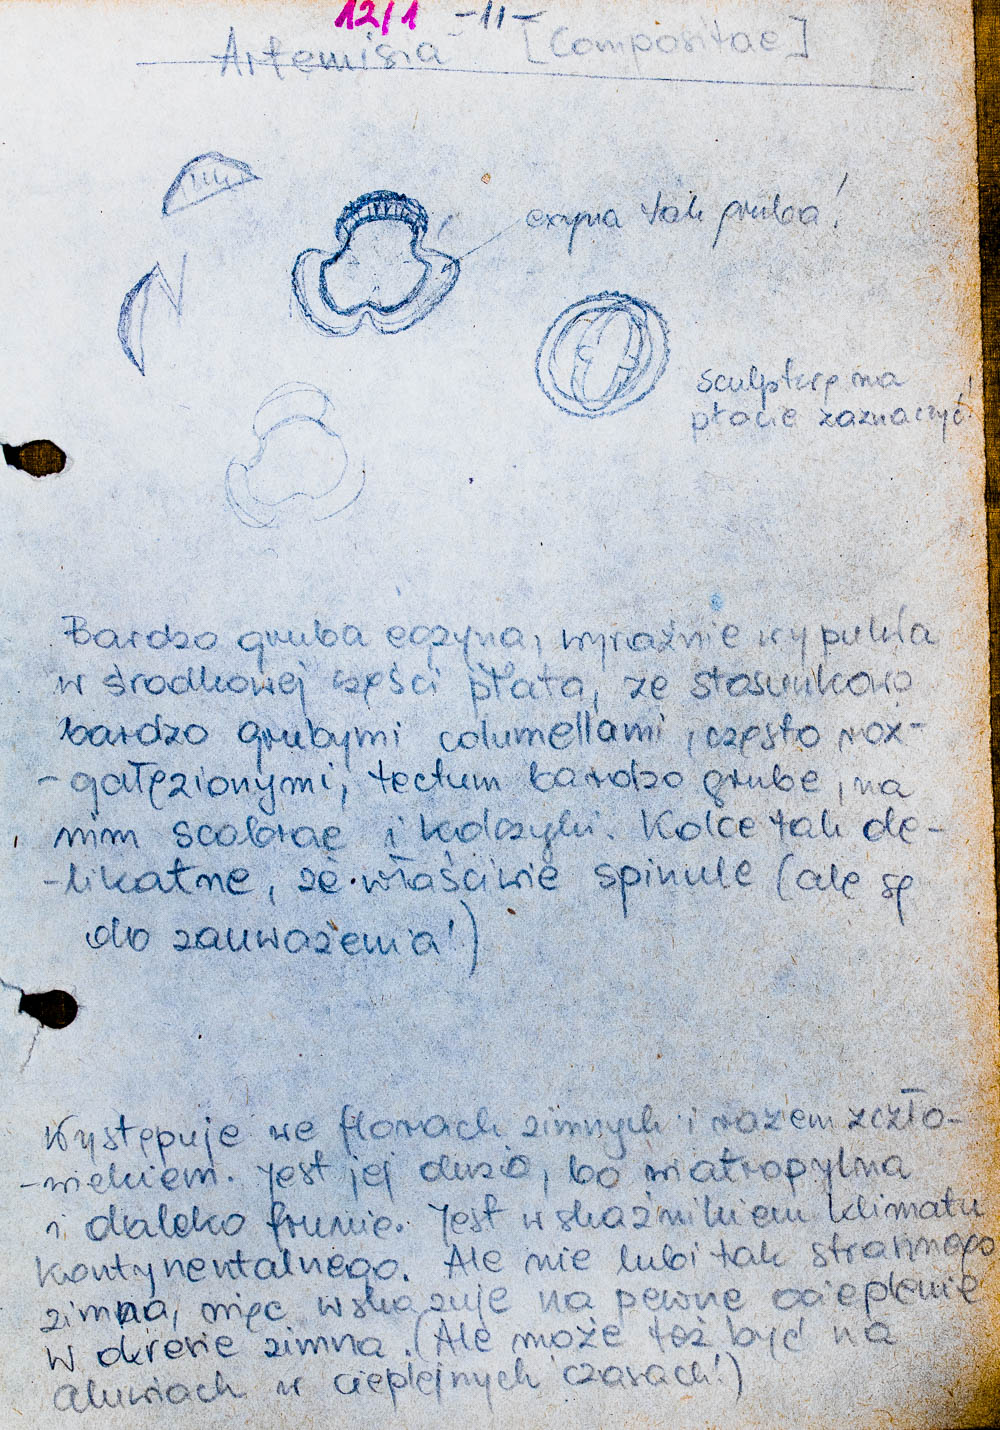 12/1 -11-
Artemisia [Compositae]
exyna tak gruba!
sculpturę na
płacie zaznaczyć!
Bardzo gruba egzyna, wyraźnie wypukła
w środkowej części płata, ze stosunkowo
bardzo grubymi columellami, często roz-
-gałęzionymi, tectum bardzo grube, na
nim scabrae i kolczyki. Kolce tak de-
-likatne, że właściwie spinule (ale są
do zauważenia!)
Występuje we florach zimnych i razem z czło-
-wiekiem. Jest jej dużo, bo wiatropylna
i daleko frunie. Jest wskaźnikiem klimatu
kontynentalnego. Ale nie lubi tak strasznego
zimna, więc wskazuje na pewne ocieplenie
w okresie zimna. (Ale może też być na
aluwiach w cieplejnych czasach!)